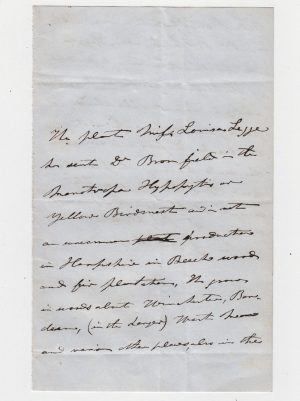 The plant Miss Louisa Legge
has sent Dr Brom field is the
Monotropa Hypopitys or
Yellow Birdsnest and is not
an uncommon plant production
in Hampshire in Beech woods
and fir plantations, It grows
in woods about Winchester,
(in the Hanger) West
and various other places, also in the